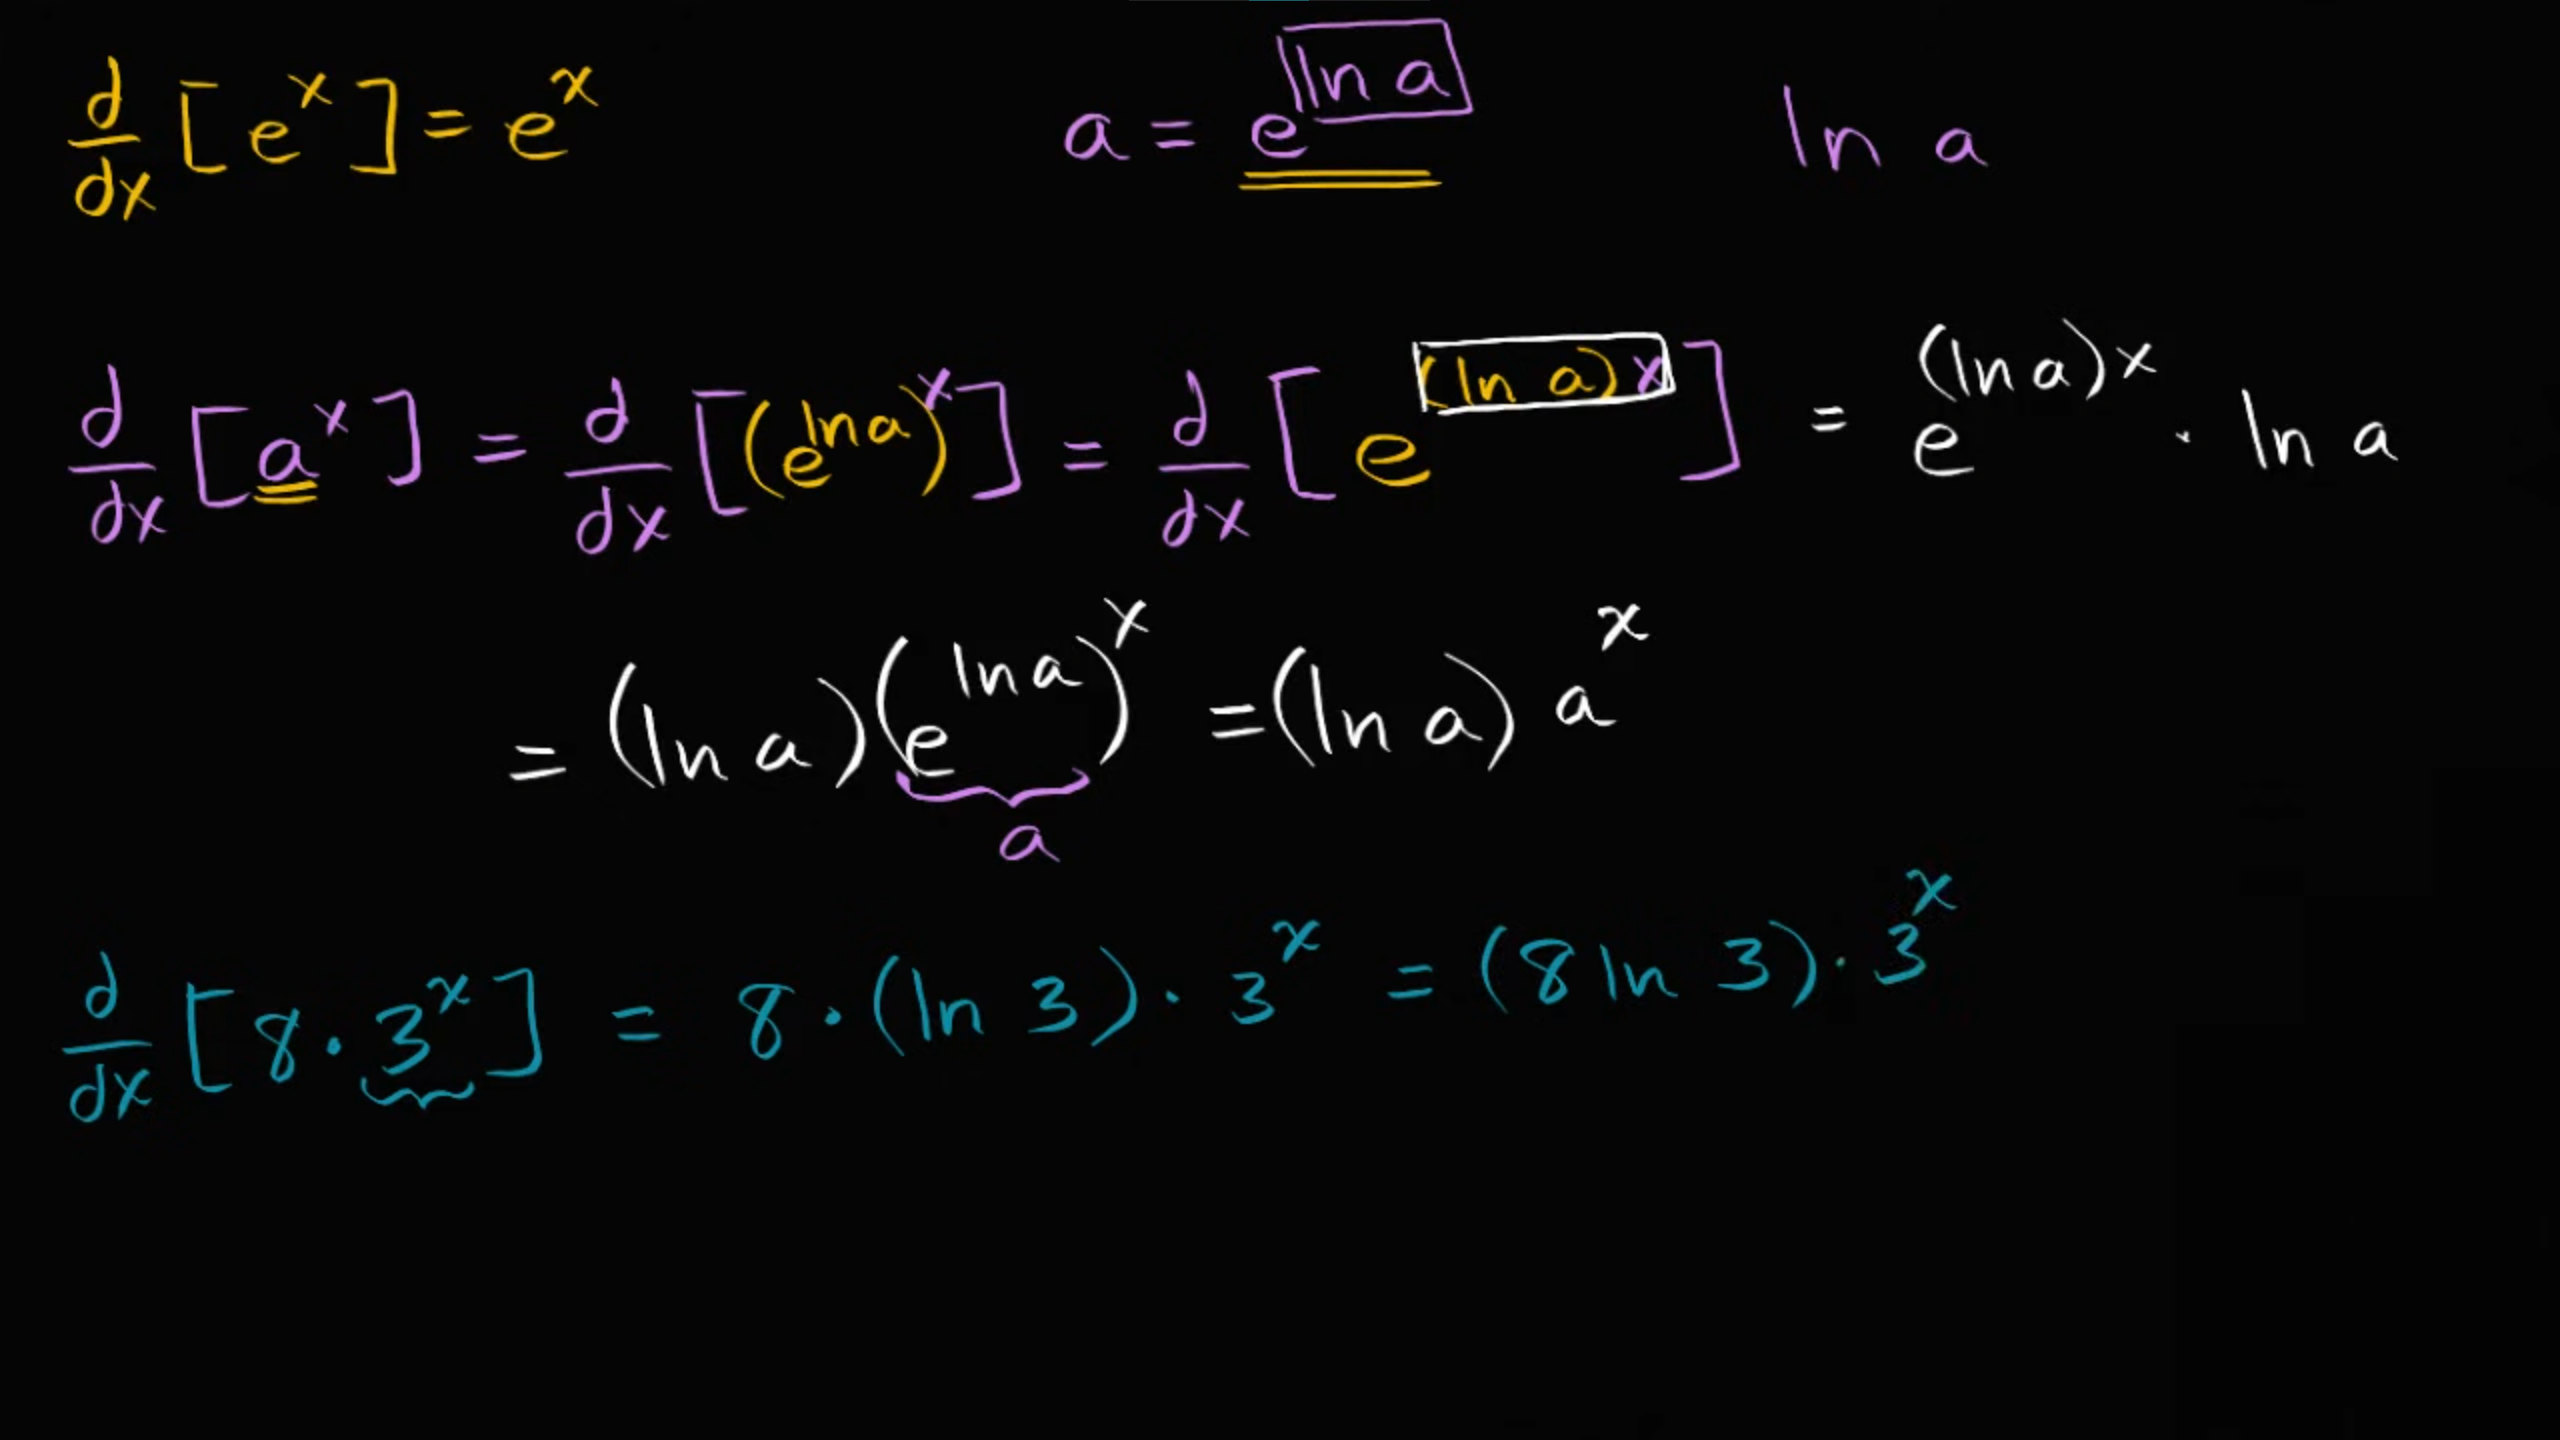 d/dx [e^x] = e^x    a = e^(ln a)    ln a
d/dx [a^x] = d/dx [(e^(ln a))^x] = d/dx [e^((ln a)x)] = e^((ln a)x) · ln a
= (ln a)(e^(ln a))^x = (ln a) a^x
a
d/dx [8 · 3^x] = 8 · (ln 3) · 3^x = (8 ln 3) · 3^x